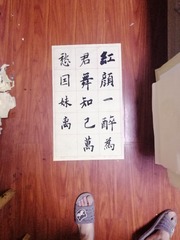 紅顔一醉為
君舞知己萬
愁因妹离